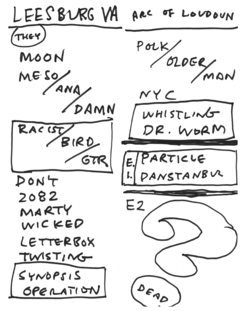 LEESBURG VA
ARC OF LOUDOUN
THEY
MOON
MESO/
ANA/
DAMN
RACIST/
BIRD/
GTR
DON'T
2082
MARTY
WICKED
LETTERBOX
TWISTING
SYNOPSIS
OPERATION
POLK/
OLDER/
MAN
NYC
WHISTLING
DR. WORM
E.1.
PARTICLE
DANSTANBUL
E2
DEAD